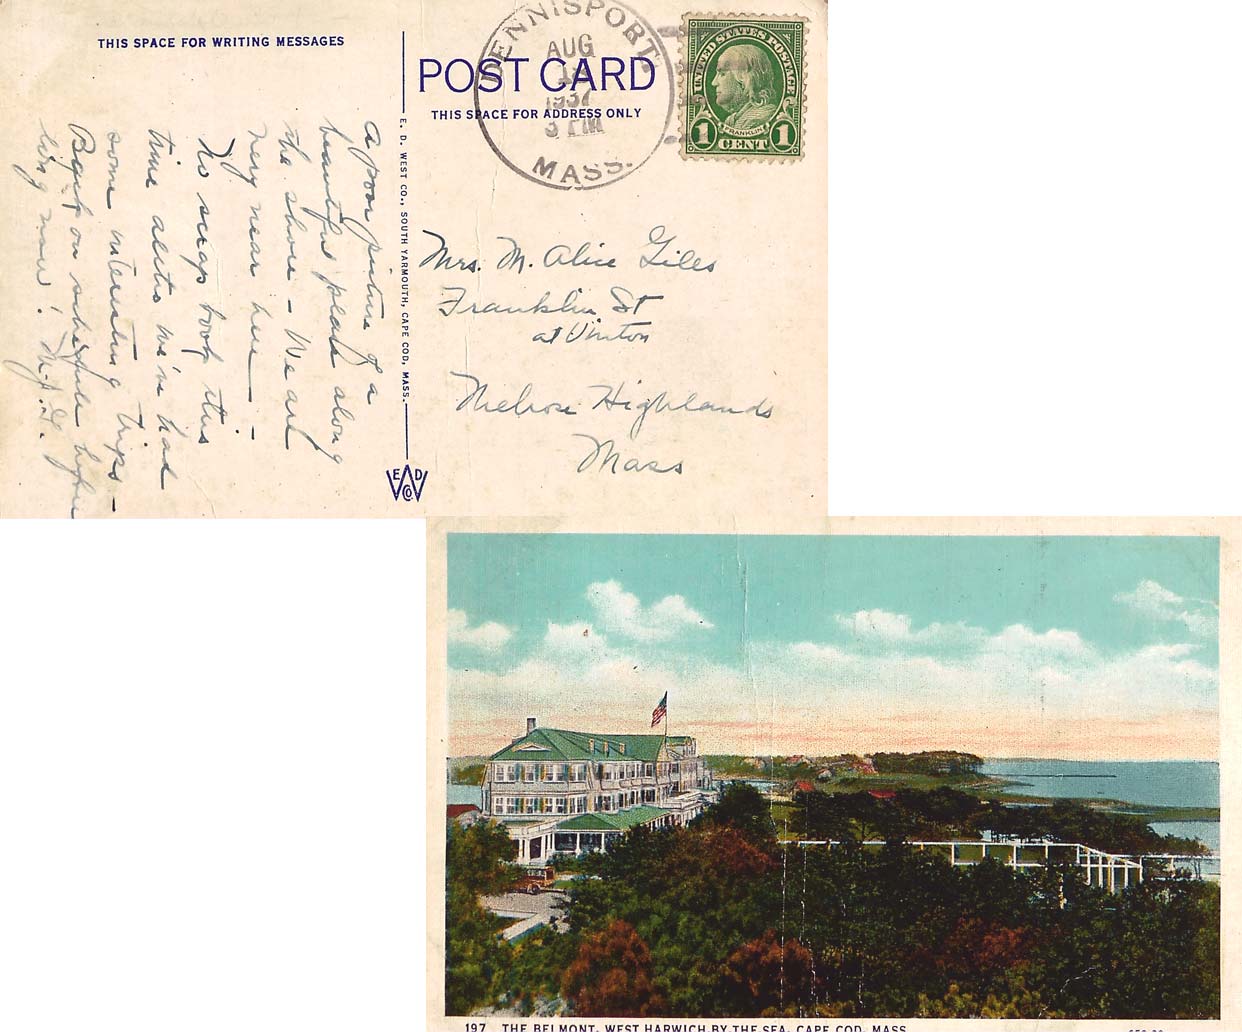 THIS SPACE FOR WRITING MESSAGES
POST CARD
THIS SPACE FOR ADDRESS ONLY
DENNISPORT.
AUG
1937
3 PM
MASS.
UNITED STATES POSTAGE
FRANKLIN
1 CENT 1
E. D. WEST CO., SOUTH YARMOUTH, CAPE COD, MASS.
E D
W
CO.
A poor picture of a
beautiful place along
the shore - We are
very near here -
No scrap book this
time altho we've had
some interesting trips -
Back on schedule
now! M.A.G.
Mrs. M. Alice Giles
Franklin St
at Vinton
Melrose Highlands
Mass
197 THE BELMONT, WEST HARWICH BY THE SEA, CAPE COD, MASS.